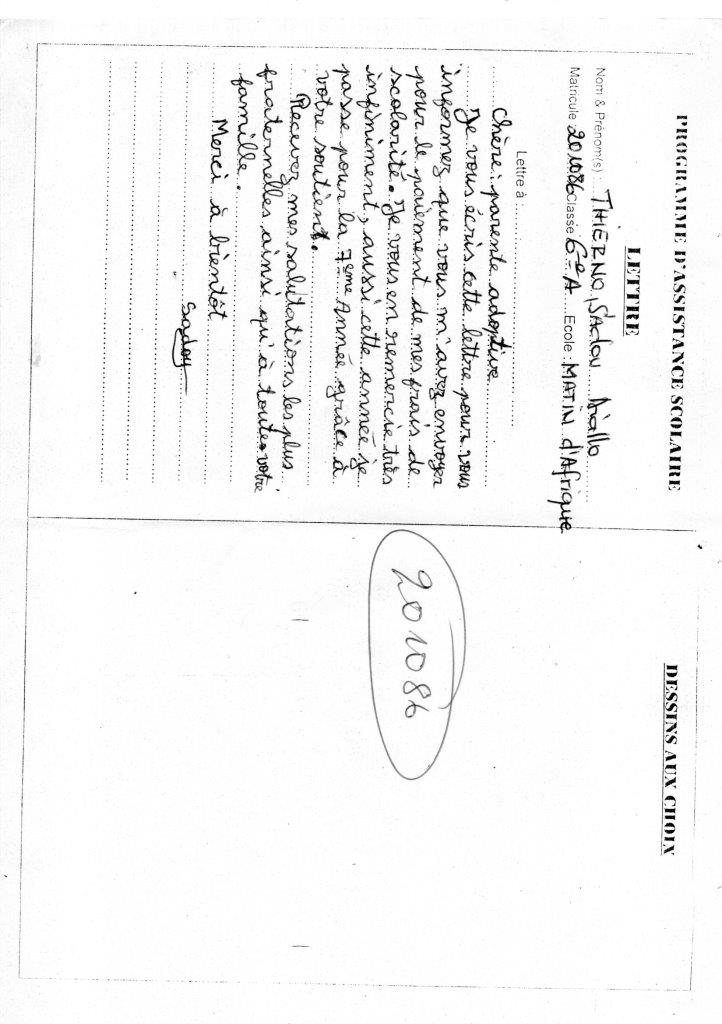 PROGRAMME D'ASSISTANCE SCOLAIRE
LETTRE
Nom & Prénom(s) THIERNO Sadou Diallo
Matricule : 201086 Classé 6è A Ecole : MATIN d'Afrique
Lettre à
Chère : parente adoptive
Je vous écris cette lettre pour vous
informez que vous m'avez envoyer
pour le paiement de mes frais de
scolarité. Je vous en remercie très
infiniment, aussi cette année je
passe pour la 7ème Année grâce à
votre soutient.
Recevez mes salutations les plus
fraternelles ainsi qu'à toute votre
famille.
Merci à bientôt
Sadou
DESSINS AUX CHOIX
201086